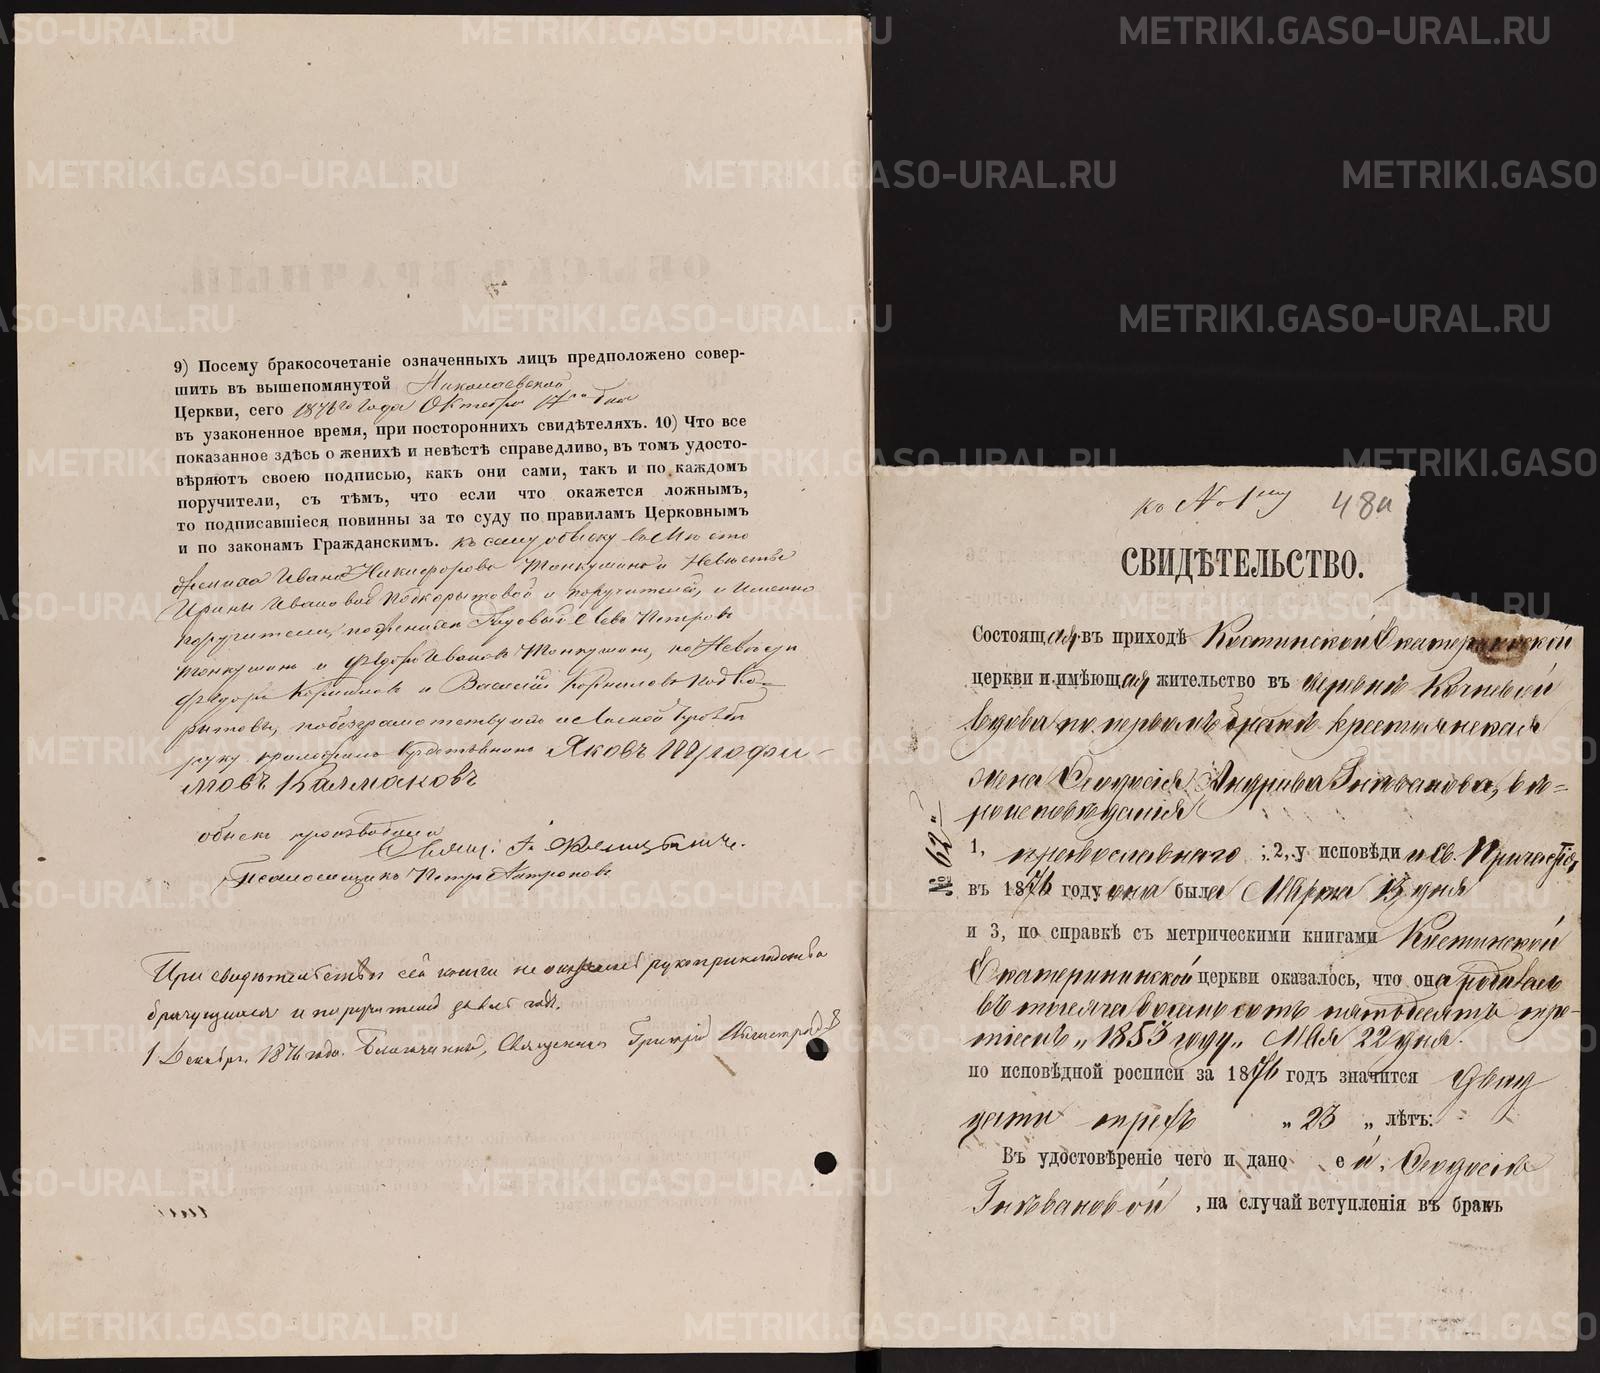 9) Посему бракосочетаніе означенныхъ лицъ предположено совер-
шить въ вышепомянутой Николаевской
Церкви, сего 1876го года Октября 17го дня
въ узаконенное время, при постороннихъ свидѣтеляхъ. 10) Что все
показанное здѣсь о женихѣ и невѣстѣ справедливо, въ томъ удосто-
вѣряютъ своею подписью, какъ они сами, такъ и по каждомъ
поручители, съ тѣмъ, что если что окажется ложнымъ,
то подписавшіеся повинны за то суду по правиламъ Церковнымъ
и по законамъ Гражданскимъ. къ сему обыску вмѣсто
жениха Ивана Никифорова и Невѣсты
Ирины Ивановой Подкорытовой и поручителей, а именно
поручители, по женихѣ Петровъ
и Ѳедоръ Ивановъ по Невѣсте
Ѳедоръ и Василій Корниловъ Подко-
рытовы, по безграмотству ихъ и личной прозьбѣ
руку приложилъ Яковъ Трофи-
мовъ Калмаковъ
обыскъ производили
Свящ:
Псаломщикъ Петръ Антроповъ
При свидетельствѣ сей книги не рукоприкладства
брачущихся и поручителей
1 Декабря. 1876 года. Благочинный, Священникъ Григорій
къ № 1му 48а
СВИДѢТЕЛЬСТВО.
Состоящая въ приходѣ Костинской Екатерининской
церкви и имѣющая жительство въ деревнѣ Кочневой
вдова по первомъ бракѣ крестьянская
жена Ѳеодосія Андріева вѣ-
роисповѣданія
№ 62й
1, православнаго ; 2, у исповѣди и Св. Причастія,
въ 1876 году она была Марта 13 дня
и 3, по справкѣ съ метрическими книгами Костинской
Екатерининской церкви оказалось, что она родилась
въ тысяча восемь сотъ пятьдесятъ тре-
тіемъ „1853 году„ Мая 22 дня.
по исповѣдной росписи за 1876 годъ значится двад
цати трехъ „ 23 „ лѣтъ:
Въ удостовѣреніе чего и дано ей, Ѳеодосіѣ
, на случай вступленія въ бракъ
METRIKI.GASO-URAL.RU